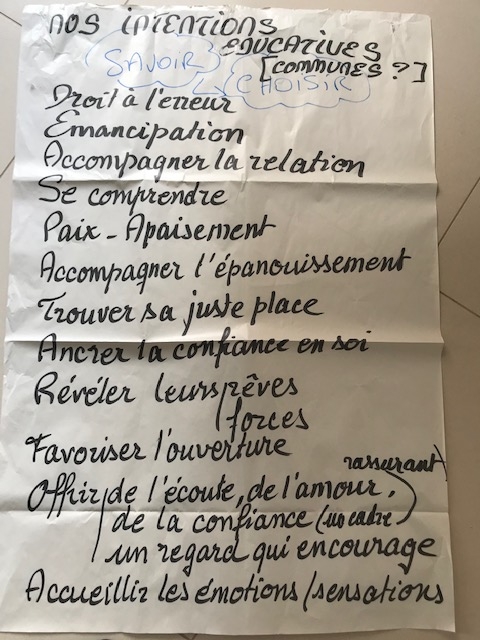 NOS INTENTIONS
EDUCATIVES
[COMMUNES ?]
SAVOIR
CHOISIR
Droit à l'erreur
Emancipation
Accompagner la relation
Se comprendre
Paix - Apaisement
Accompagner l'épanouissement
Trouver sa juste place
Ancrer la confiance en soi
Révéler leurs rêves
forces
Favoriser l'ouverture
Offrir de l'écoute, de l'amour,
de la confiance (un cadre rassurant)
un regard qui encourage
Accueillir les émotions / sensations